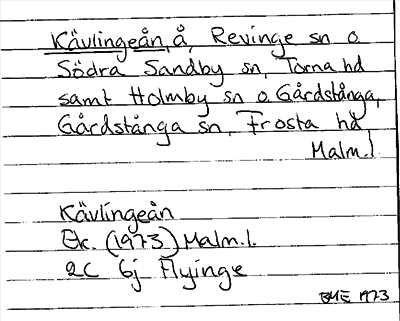 Kävlingeån, å, Revinge sn o
Södra Sandby sn, Torna hd
samt Holmby sn o. Gårdstånga,
Gårdstånga sn, Frosta hd,
Malm.l
Kävlingeån
Ek. (1973) Malm.l.
2C 6j Flyinge
BME 1973